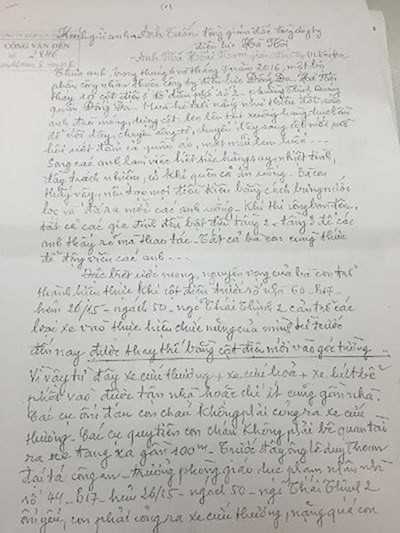 (1)
Kính gửi anh: Anh Tuấn, tổng giám đốc tổng công ty
điện lực Hà Nội
CÔNG VĂN ĐẾN
Anh Hà Hoài Nam
Thưa anh, trong tháng 6 và tháng 7 năm 2016, một
phận công nhân thuộc công ty điện lực Đống Đa, Hà Nội
thay 10 cột điện ở tổ dân phố số 2 - phường Thịnh Quang
quận Đống Đa. Mùa hè trời nắng như thiêu đốt, các
anh đào móng, dựng cột, leo lên trụ xuống hàng chục lần
để nối dây, chuyển công tơ, chuyển dây sang cột mới, mồ
hôi ướt đẫm cả quần áo, mặt mũi lem luốc ...
Song các anh làm việc hết sức hăng say, nhiệt tình,
đầy trách nhiệm, có khi quên cả ăn uống. Bà con
thấy vậy, nên tạo mọi điều kiện bằng cách bưng nước
lọc và đá ra mời các anh uống. Khi thi công ban đêm,
tất cả các gia đình đều bật đèn tầng 2 + tầng 3 để các
anh thấy rõ mà thao tác - Tất cả bà con cùng thức
để động viên các anh ...
Đặc biệt ước mong, nguyện vọng của bà con trở
thành hiện thực khi cột điện trước số nhà 60 - B17 -
hẻm 26/25 - ngách 50 - ngõ Thái Thịnh 2 cản trở các
loại xe vào thực hiện chức năng của mình từ trước
đến nay được thay thế bằng cột điện mới vào góc tường.
Vì vậy từ đây xe cứu thương + xe cứu hoả + xe hút bể
phốt vào được tận nhà hoặc chí ít cũng gần nhà.
Các cụ ốm đau con cháu không phải cõng ra xe cứu
thương. Các cụ quy tiên con cháu không phải bê quan tài
ra xe tang xa gần 100m - Trước đây ông Lê duy Thoan
đại tá công an - trưởng phòng giáo dục phạm nhân nhà
số 44 - B17 - hẻm 26/25 - ngách 50 - ngõ Thái Thịnh 2
ốm yếu, con phải cõng ra xe cứu thương, nặng quá con